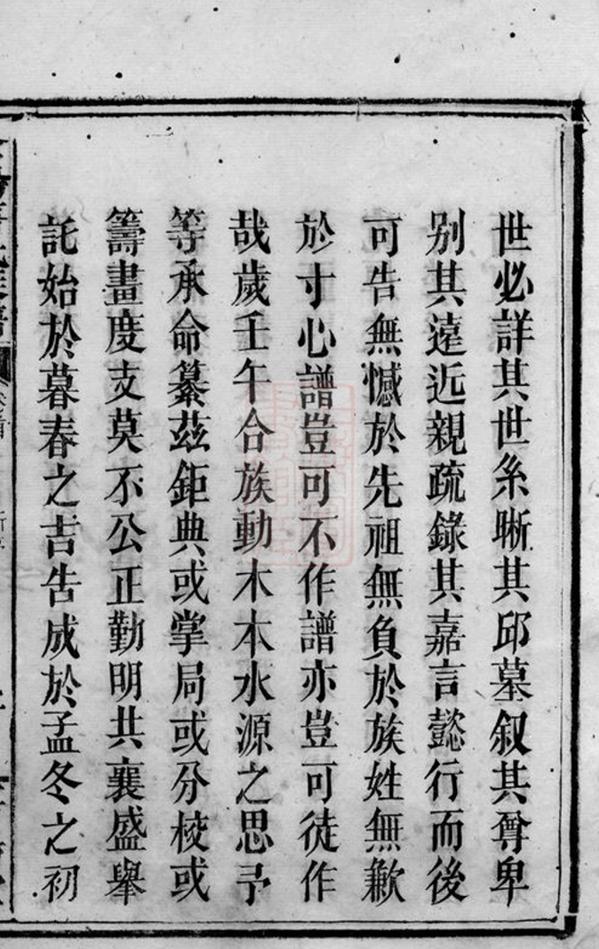 世必詳其世系晰其邱墓叙其尊卑
别其遠近親疏錄其嘉言懿行而後
可告無憾於先祖無負於族姓無歉
於寸心譜豈可不作譜亦豈可徒作
哉歲壬午合族動木本水源之思予
等承命纂茲鉅典或掌局或分校或
籌畫度支莫不公正勤明共襄盛舉
託始於暮春之吉告成於孟冬之初